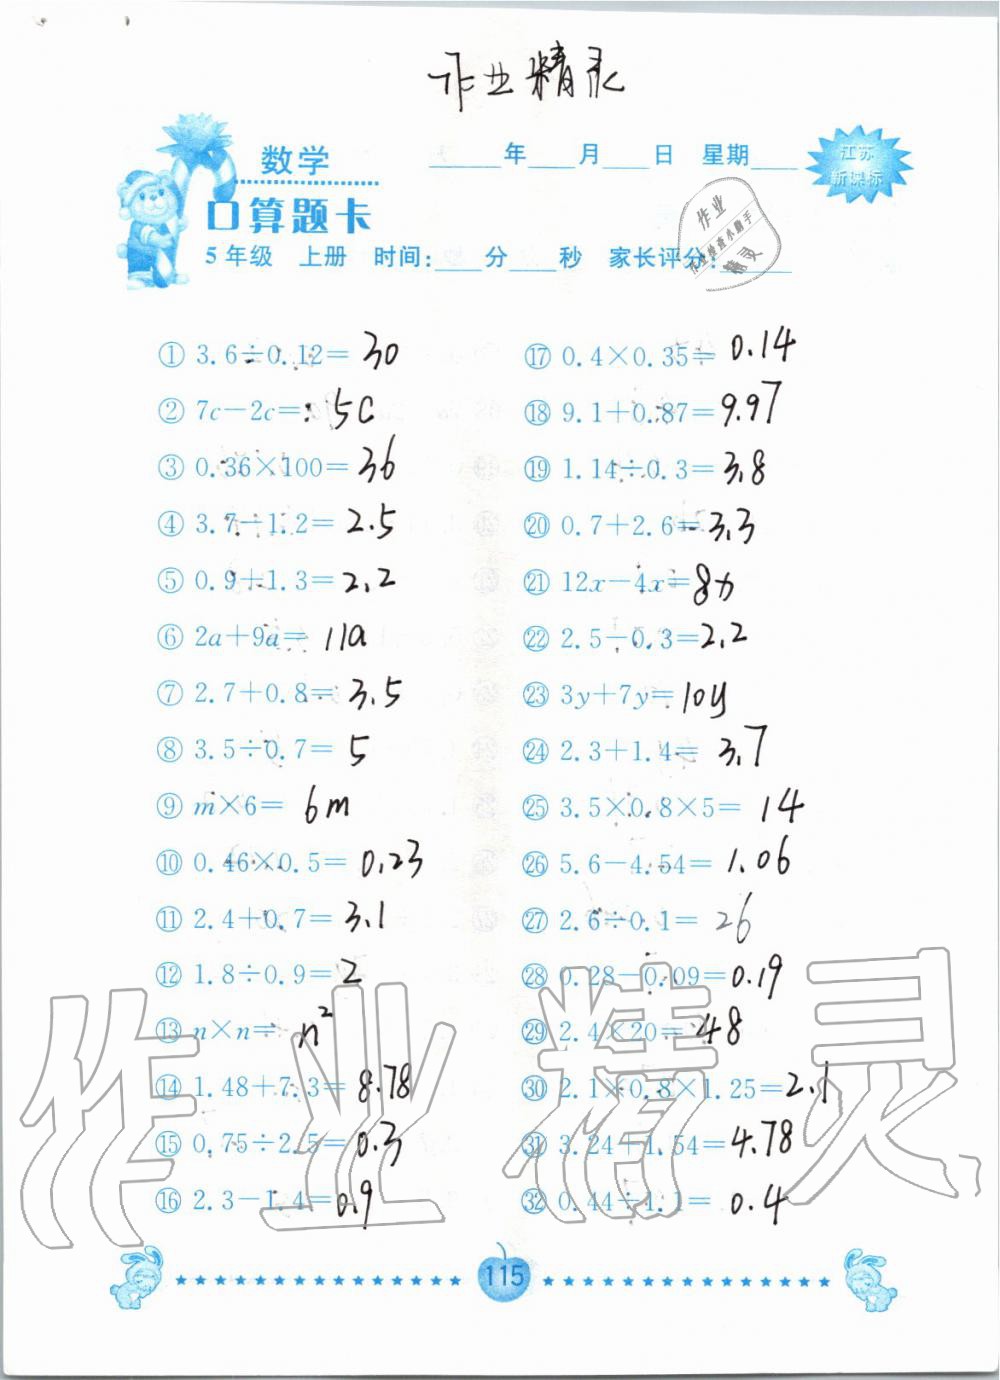 作业精灵
数学
年 月 日 星期
江苏
新课标
口算题卡
作业
作业检查小助手
精灵
5年级 上册 时间: 分 秒 家长评分:
① 3.6÷0.12= 30
② 7c－2c= 5c
③ 0.36×100= 36
④ 3.7－1.2= 2.5
⑤ 0.9+1.3= 2.2
⑥ 2a+9a= 11a
⑦ 2.7+0.8= 3.5
⑧ 3.5÷0.7= 5
⑨ m×6= 6m
⑩ 0.46×0.5= 0.23
⑪ 2.4+0.7= 3.1
⑫ 1.8÷0.9= 2
⑬ n×n= n²
⑭ 1.48+7.3= 8.78
⑮ 0.75÷2.5= 0.3
⑯ 2.3－1.4= 0.9
⑰ 0.4×0.35= 0.14
⑱ 9.1+0.87= 9.97
⑲ 1.14÷0.3= 3.8
⑳ 0.7+2.6= 3.3
㉑ 12x－4x= 8x
㉒ 2.5－0.3= 2.2
㉓ 3y+7y= 10y
㉔ 2.3+1.4= 3.7
㉕ 3.5×0.8×5= 14
㉖ 5.6－4.54= 1.06
㉗ 2.6÷0.1= 26
㉘ 0.28－0.09= 0.19
㉙ 2.4×20= 48
㉚ 2.1×0.8×1.25= 2.1
㉛ 3.24+1.54= 4.78
㉜ 0.44÷1.1= 0.4
作业精灵
115